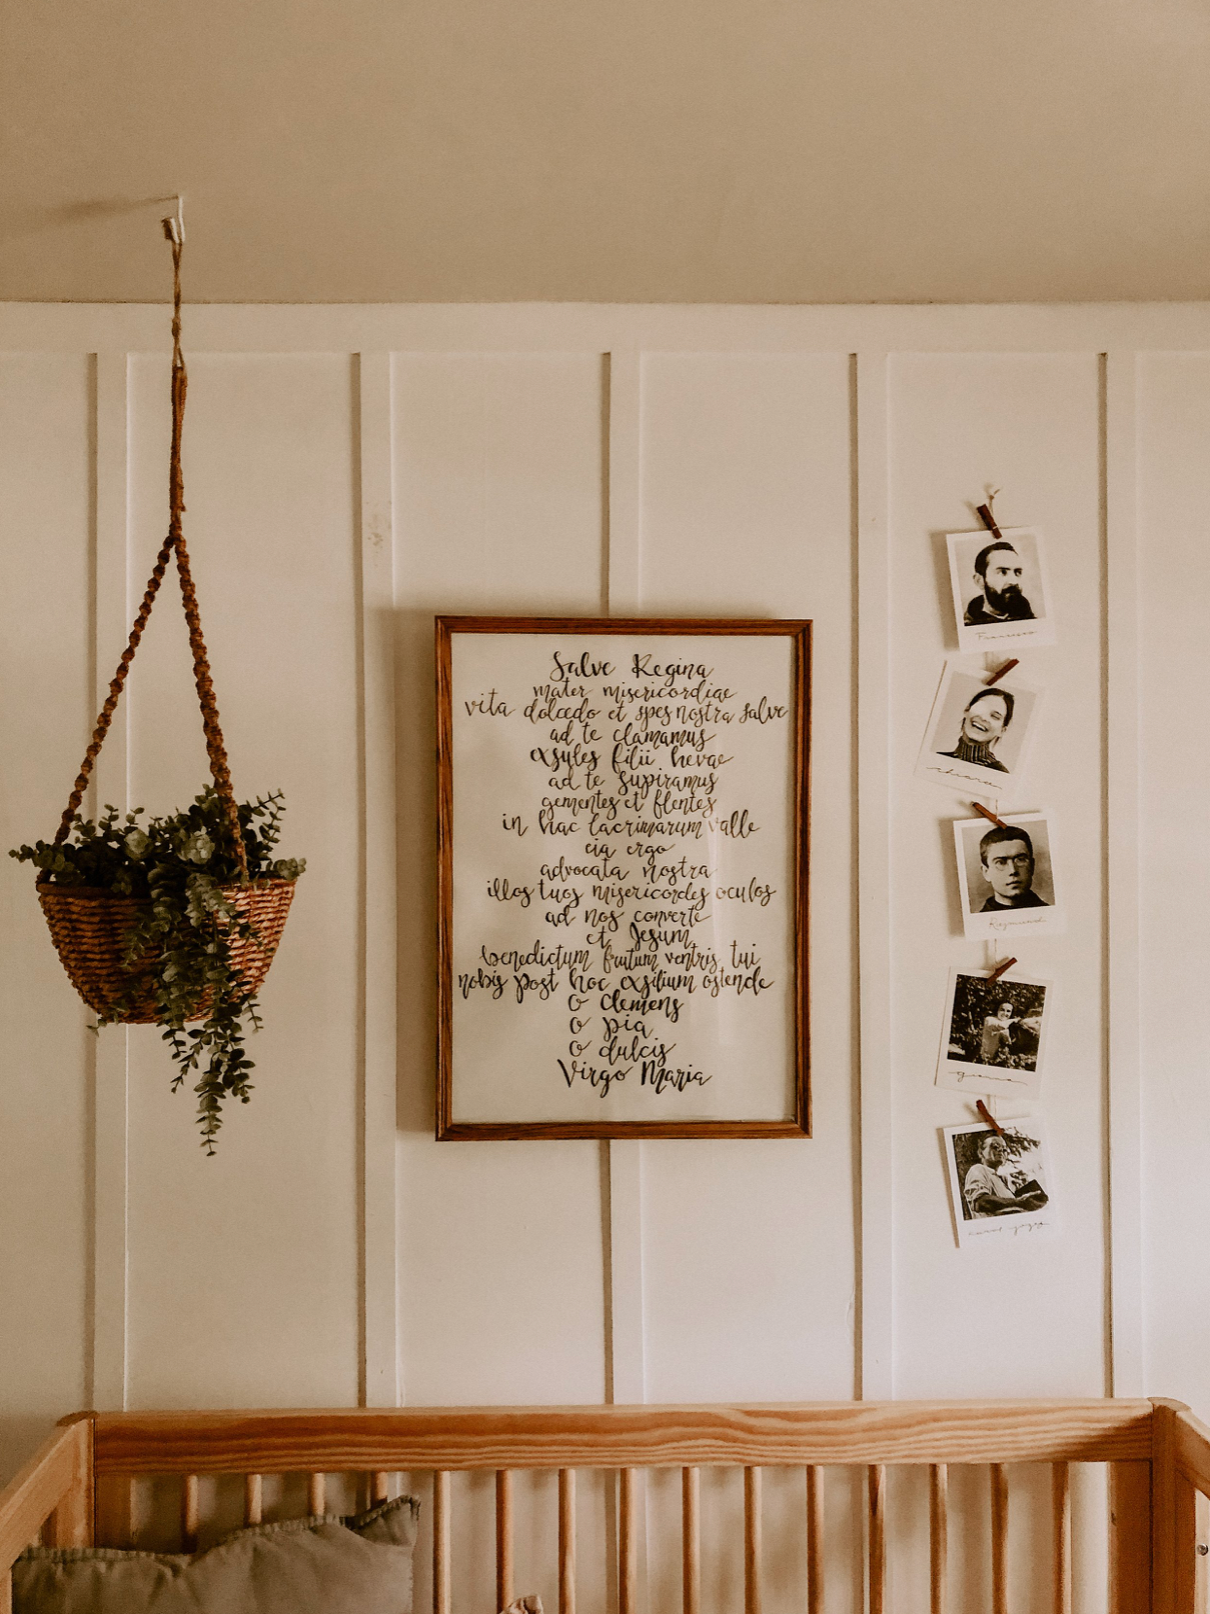 Salve Regina
mater misericordiae
vita dolcedo et spes nostra salve
ad te clamamus
exsules filii hevae
ad te supiramus
gementes et flentes
in hac lacrimarum valle
eia ergo
advocata nostra
illos tuos misericordes oculos
ad nos converte
et Jesum
benedictum fruitum ventris tui
nobis post hoc exsilium ostende
O Clemens
O pia
O dulcis
Virgo Maria
Francesco
chiara
Raymund